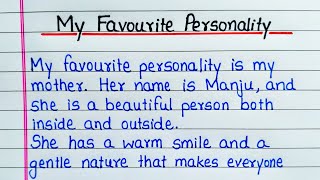 My Favourite Personality
My favourite personality is my
mother. Her name is Manju, and
she is a beautiful person both
inside and outside.
She has a warm smile and a
gentle nature that makes everyone